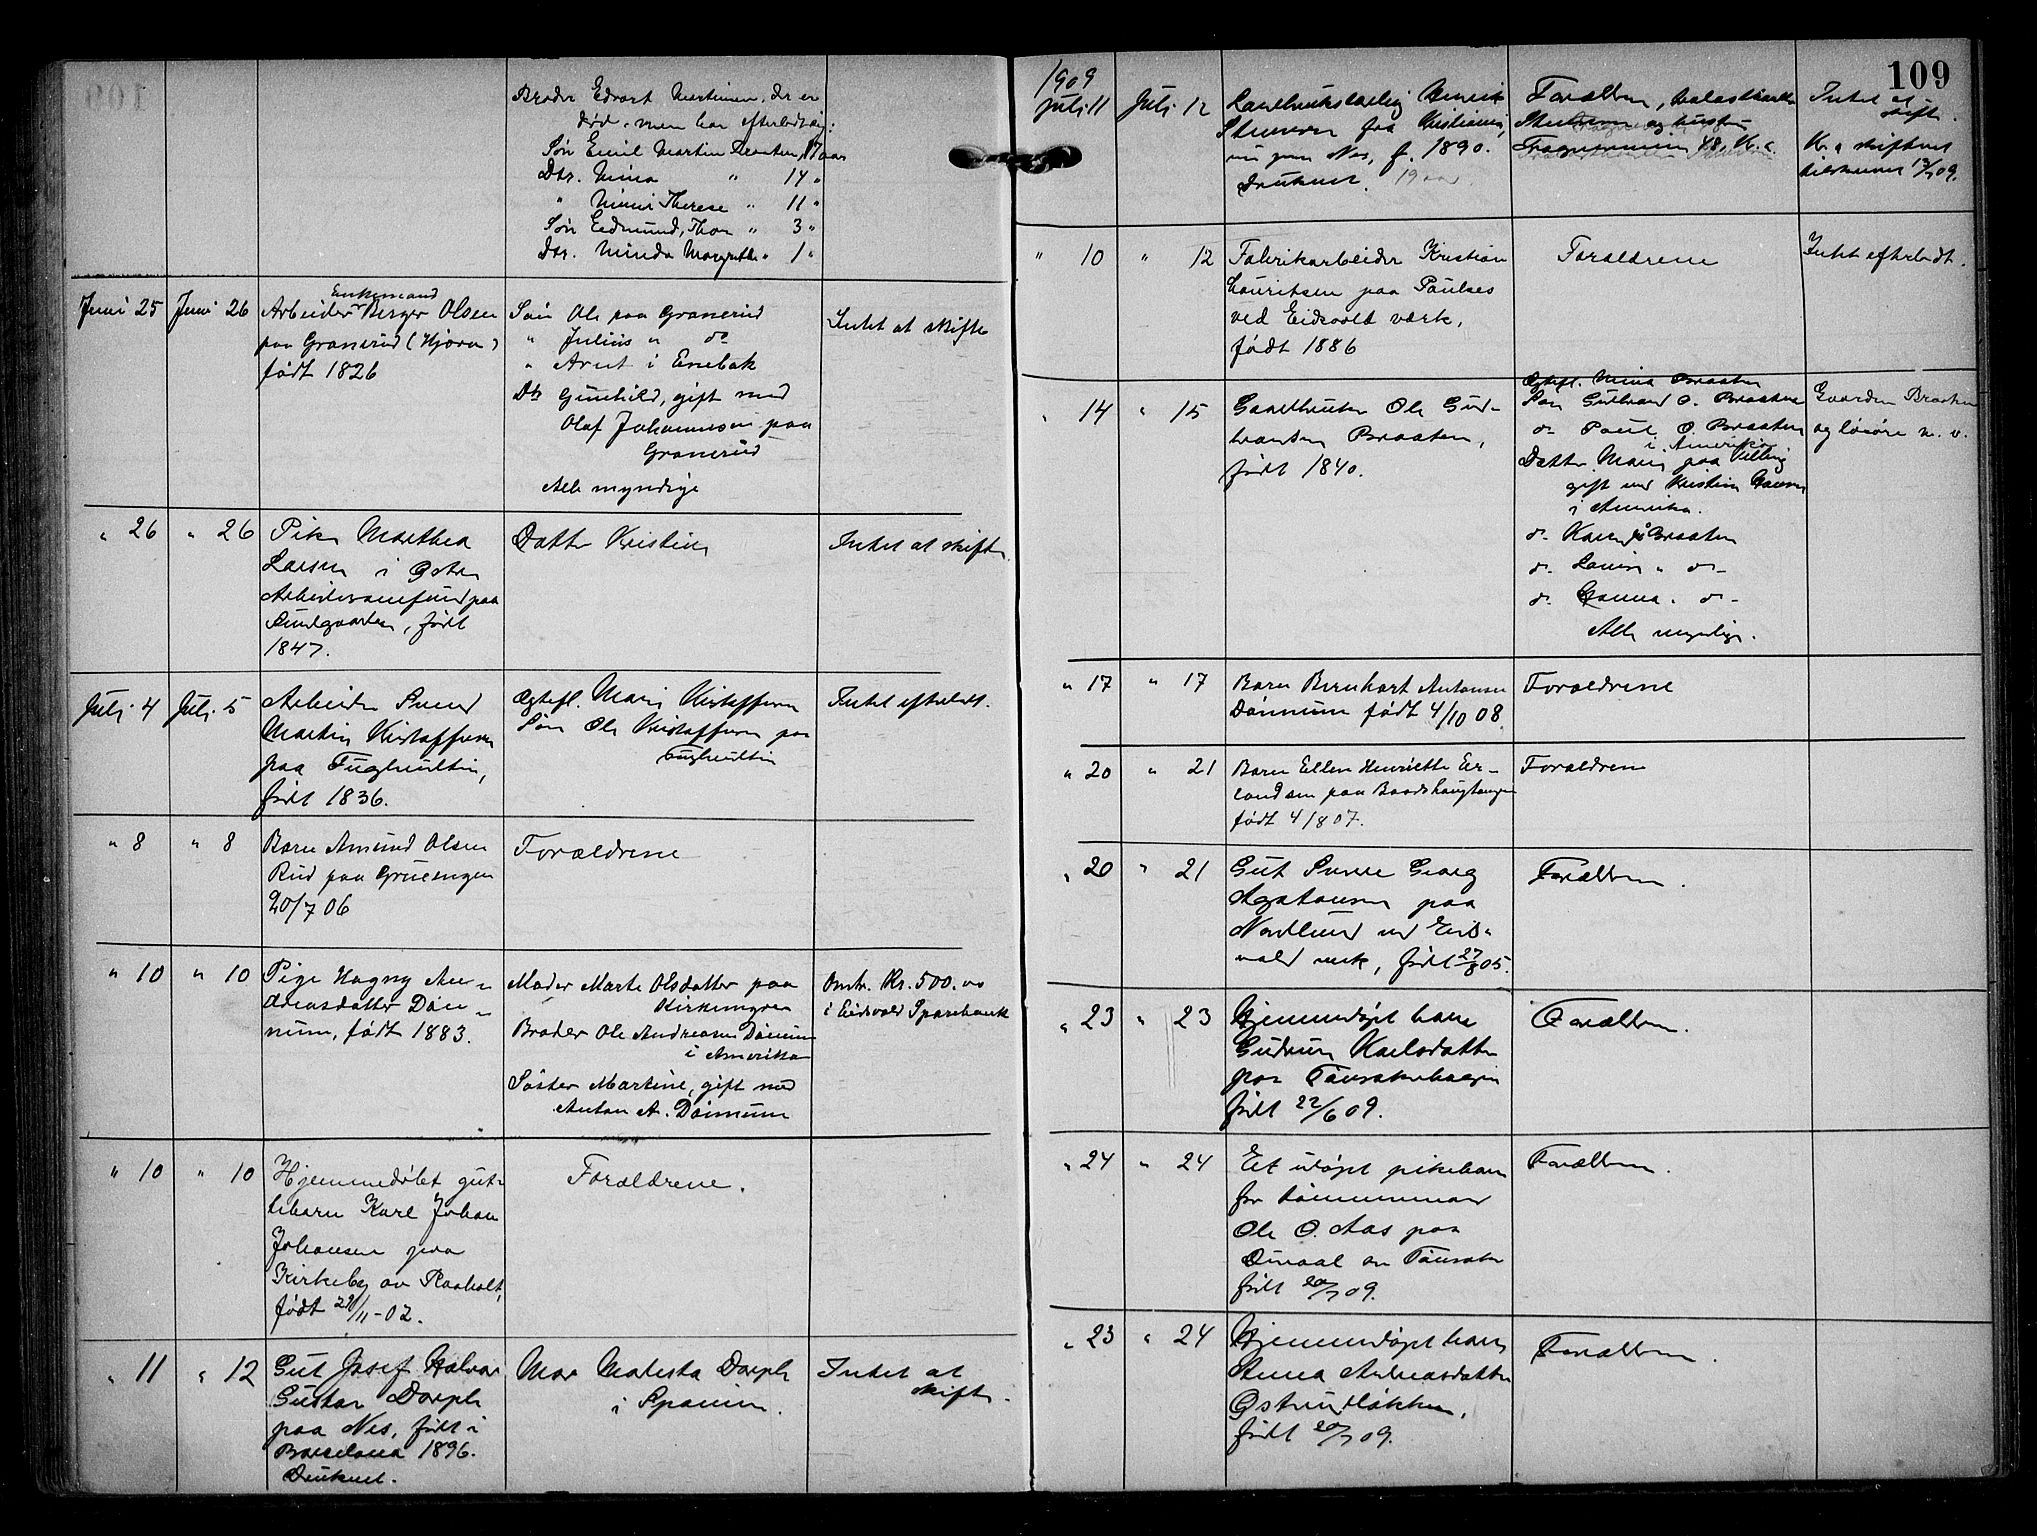 Broder Edvart Martinsen, der er
død, men har efterladt sig:
Søn Emil Martin Braaten, 17 aar
Dtr. Mina " 14 "
" Minni Therese " 11 "
Søn Eidmund, Thor " 3 "
Dtr. Minda Margrethe " 1 "
Juni 25 Juni 26
Enkemand
Arbeider Berger Olsen
paa Granerud (Hjøra)
født 1826
Søn Ole paa Granerud
" Julius " do
" Arnt i Enebak
Dtr Gunhild, gift med
Olaf Johannesen paa
Granerud
Alle myndige
Intet at skifte
" 26 " 26
Pike Marthea
Larsen i Østre
paa
født
1847.
Datter Kristine
Intet at skifte
Juli 4 Juli 5
Arbeider Svend
Martin Kristoffersen
paa Fuglhultin,
født 1836.
Ægtefl. Mari Kristoffersen
Søn Ole Kristoffersen paa
Fuglhultin
Intet efterladt.
" 8 " 8
Barn Amund Olsen
Rud paa Grüeengen
20/7 06
Forældrene
" 10 " 10
Pige Hagny An-
dreasdatter Døn-
num, født 1883.
Moder Marte Olsdatter paa
Kirkeengen
Broder Ole Andreasen Dønnum
i Amerika
Søster Martine, gift med
Anton A. Dønnum
Omtr. Kr. 500.00
i Eidsvold Sparebank
" 10 " 10
Hjemmedøbt gut-
tebarn Karl Johan
Johansen paa
Kirkeby av Raaholt,
født 29/11-02.
Forældrene.
" 11 " 12
Gut Josef Halvor
Gustav Dorph
paa Nes, født i
Barselona 1896.
Druknet.
Mor Malesta Dorph
i Spanien.
Intet at
skifte.
109
1909
Juli 11 Juli 12
Landbrukselev Henrik
fra Kristiania,
paa Nes, f. 1890.
Druknet. 19 aar.
Forældrene,
og hustru
48, Kr.a
Intet at
skifte.
Kr.a skifteret
tilskrevet 13/7 09.
" 10 " 12
Fabrikarbeider Kristian
Lauritsen paa Paulses
ved Eidsvold værk,
født 1886
Forældrene
Intet efterladt.
" 14 " 15
Gaardbruker Ole Gud-
brandsen Braaten,
født 1840.
Ægtefl. Mina Braaten
Søn Gulbrand O. Braaten
do Paul O. Braaten
i Amerika
Datter Mari paa Villing
gift med Kristian Hansen
i Amerika.
do Karen på Braaten
do Lovise " do -
do Hanna " do -
Alle myndige.
Gaarden Braaten
og løsøre m. v.
" 17 " 17
Barn Bernhart Antonsen
Dønnum født 4/10 08.
Forældrene
" 20 " 21
Barn Ellen Henriette Er-
landsen paa Baadshaugtangen
født 4/8 07.
Forældrene
" 20 " 21
Gut Sverre Georg
Agatonsen paa
Nordlund ved Eids-
vold verk, født 27/8 05.
Forældrene.
" 23 " 23
Hjemmedøpt barn
Gudrun Karlsdatter
paa Tønsakerhagen
født 22/6 09.
Forældrene.
" 24 " 24
Et udøpt pikebarn
for tømmermand
Ole O. Aas paa
Dinaal av Tønsaker
født 20/7 09.
Forældrene.
" 23 " 24
Hjemmedøpt barn
Anna Andreasdatter
Østrudløkken,
født 20/7 09.
Forældrene.